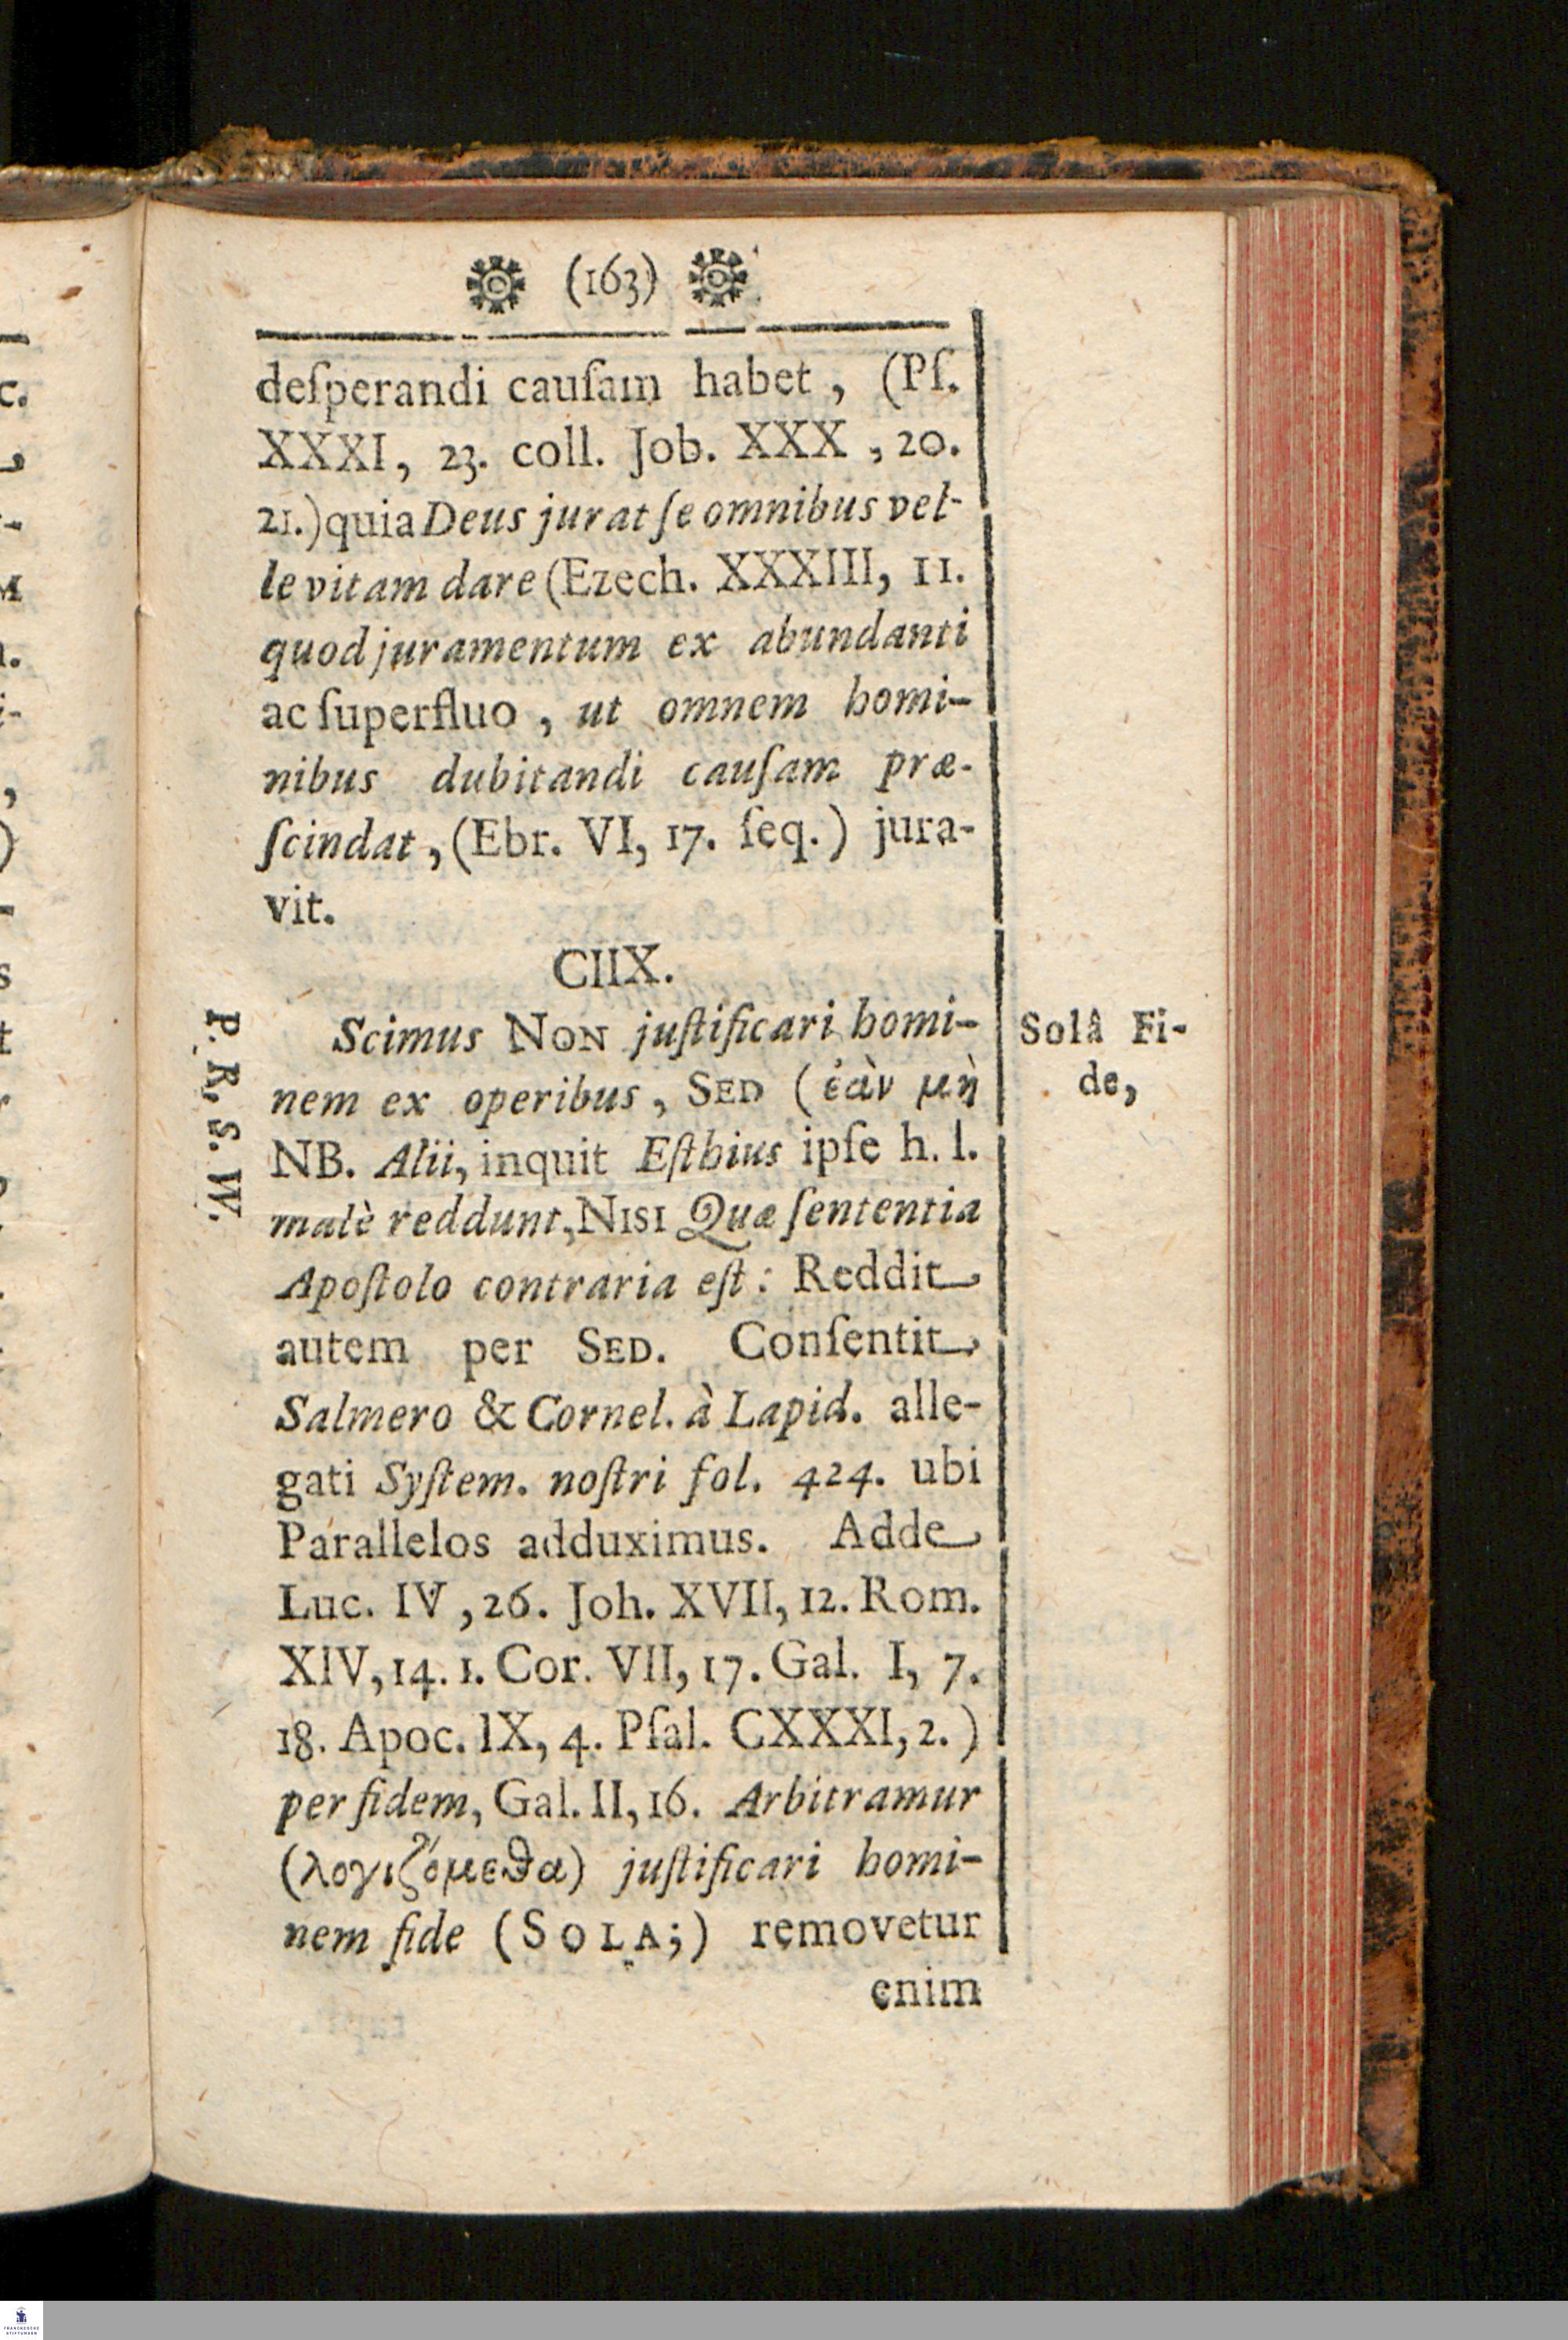 (163)
deſperandi cauſam habet, (Pſ.
XXXI, 23. coll. Job. XXX, 20.
21.) quia Deus jurat ſe omnibus vel-
le vitam dare (Ezech. XXXIII, 11.
quod juramentum ex abundanti
ac ſuperfluo, ut omnem homi-
nibus dubitandi cauſam præ-
ſcindat, (Ebr. VI, 17. ſeq.) jura-
vit.
CIIX.
Scimus NON juſtificari homi-
nem ex operibus, SED (ἐὰν μὴ
NB. Alii, inquit Eſthius ipſe h. l.
malè reddunt, NISI Quæ ſententia
Apoſtolo contraria eſt: Reddit
autem per SED. Conſentit
Salmero & Cornel. à Lapid. alle-
gati Syſtem. noſtri fol. 424. ubi
Parallelos adduximus. Adde
Luc. IV, 26. Joh. XVII, 12. Rom.
XIV, 14. 1. Cor. VII, 17. Gal. I, 7.
18. Apoc. IX, 4. Pſal. CXXXI, 2.)
per fidem, Gal. II, 16. Arbitramur
(λογιζόμεϑα) juſtificari homi-
nem fide (SOLA;) removetur
enim
Solâ Fi-
de,
P. R. S. W.
c.
FRANCKESCHE
STIFTUNGEN